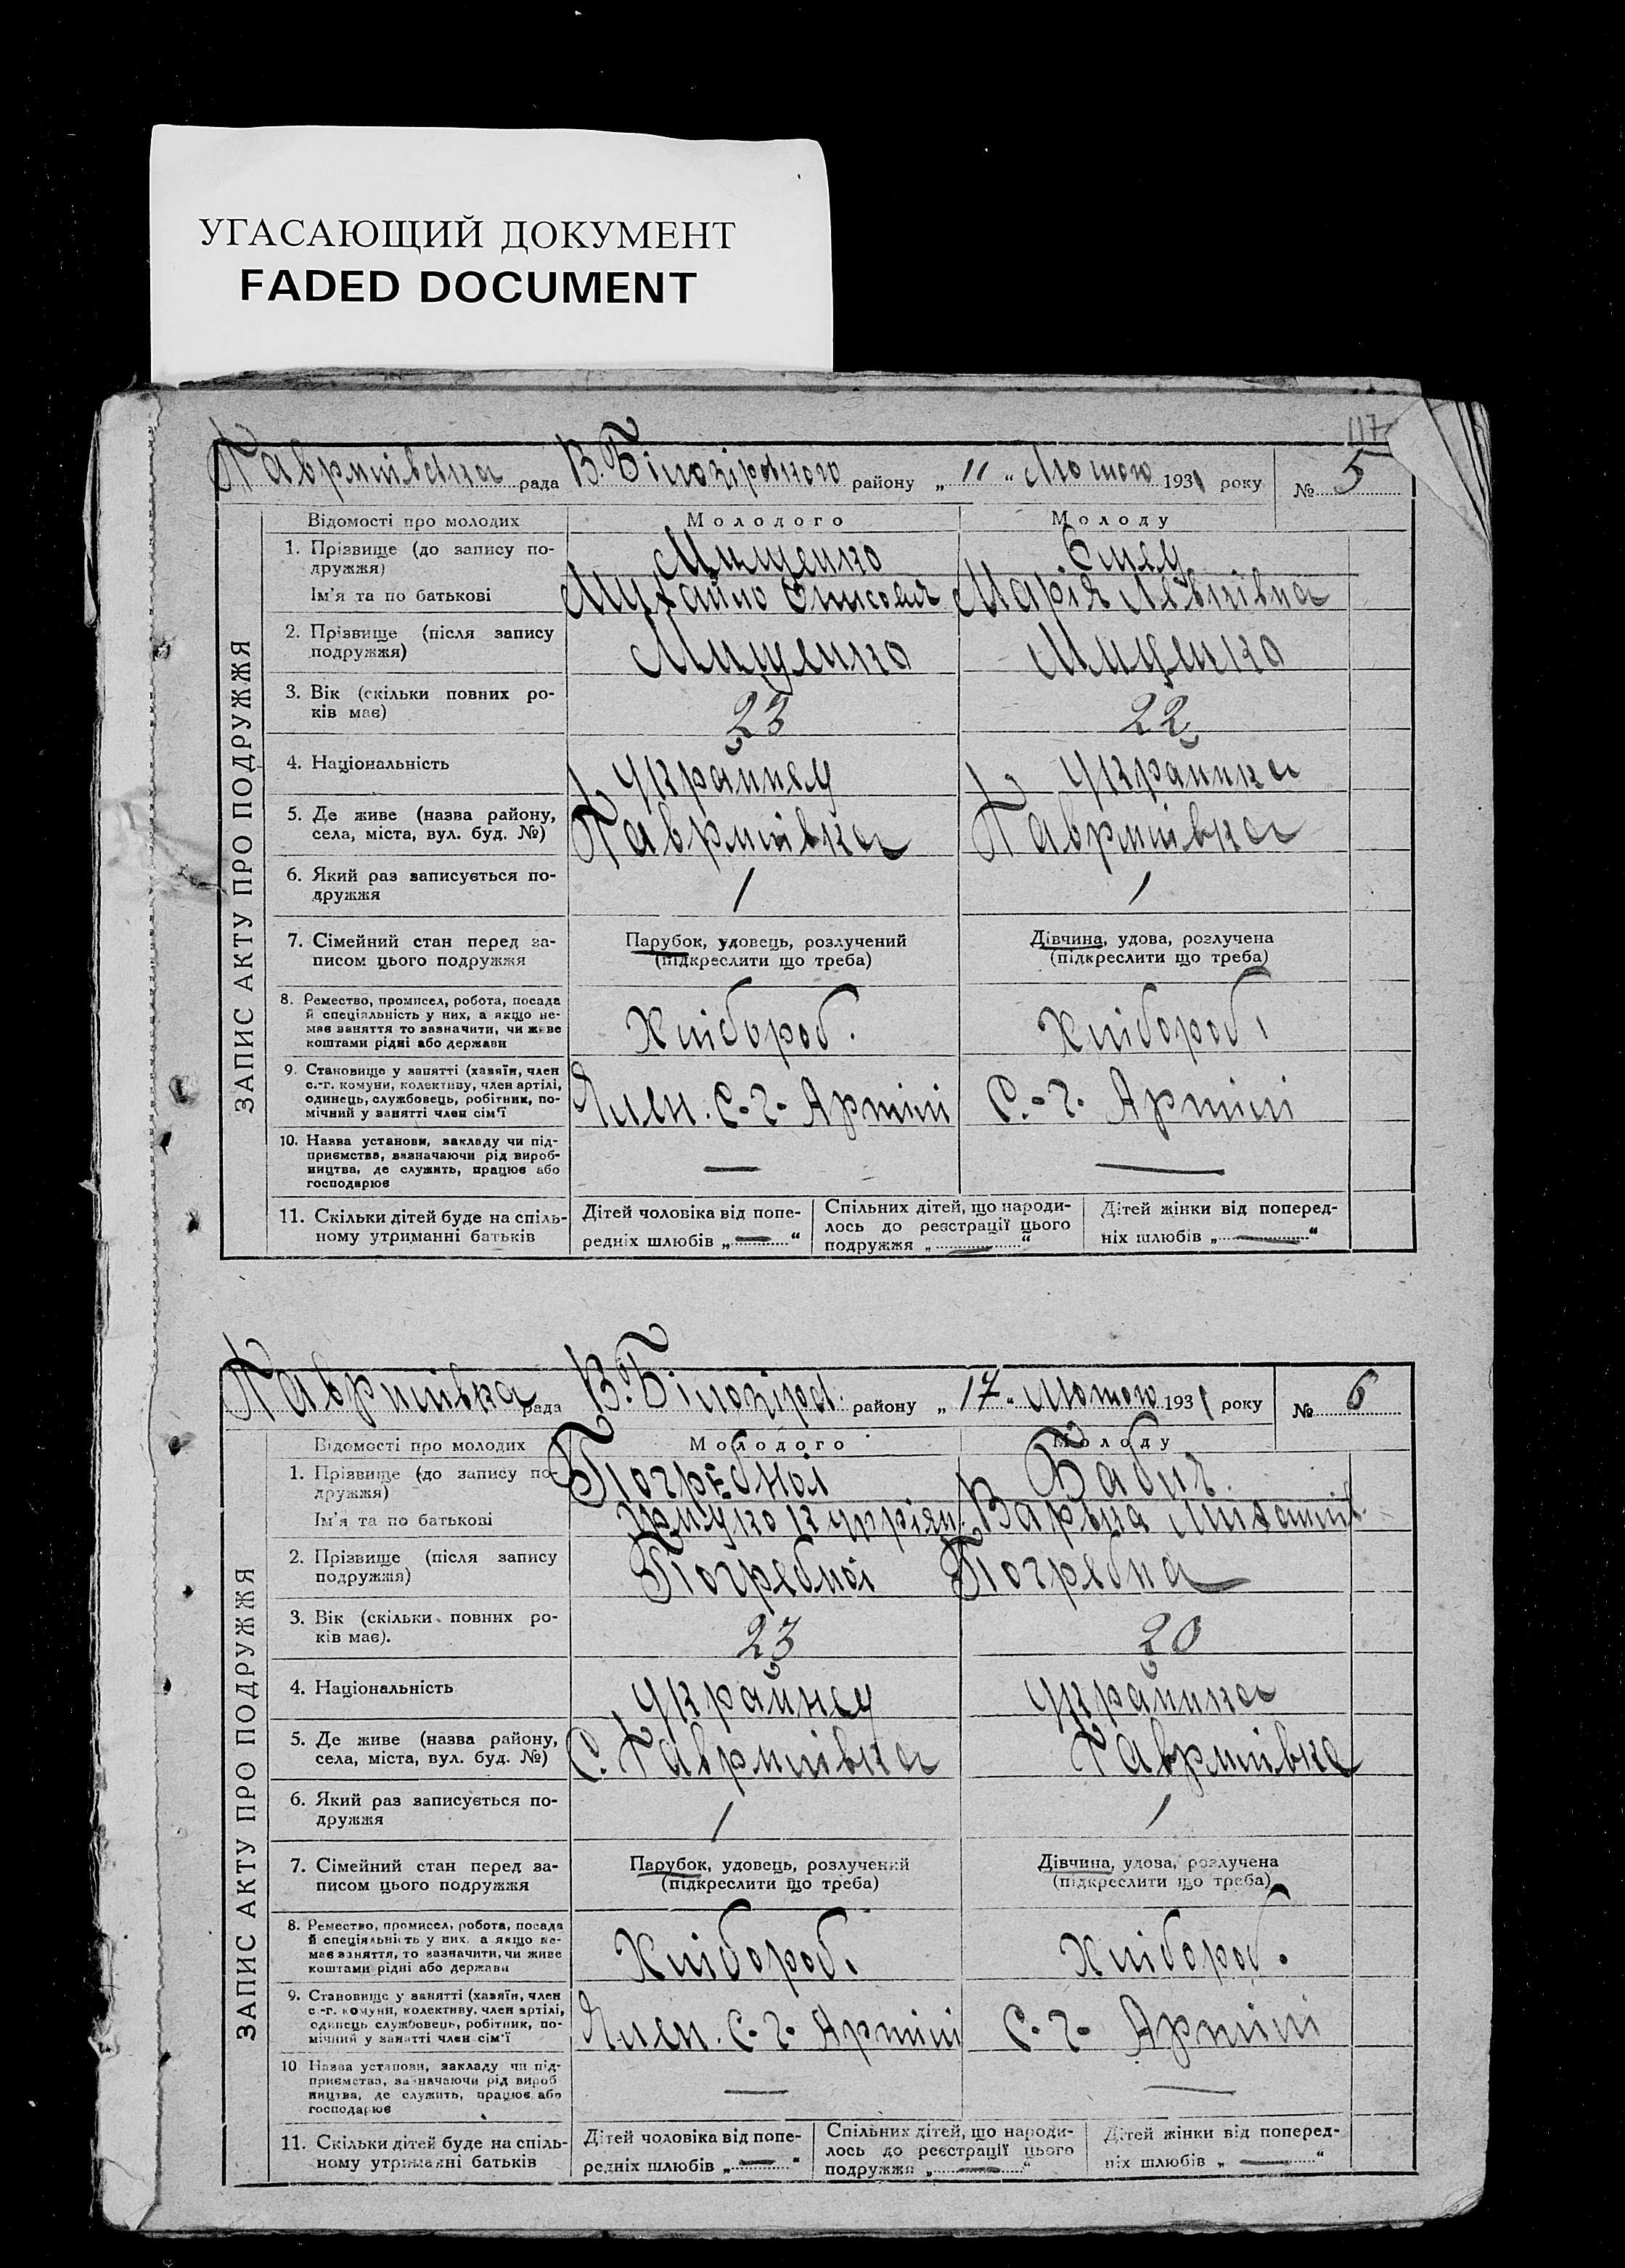 УГАСАЮЩИЙ ДОКУМЕНТ
FADED DOCUMENT
117
Гаврилівська рада В. Білозірського району „ 11 “ Лютого 1931 року № 5
ЗАПИС АКТУ ПРО ПОДРУЖЖЯ
Відомості про молодих Молодого Молоду
1. Прізвище (до запису по-
дружжя) Мищенко
Ім'я та по батькові Михайло Марія
2. Прізвище (після запису
подружжя) Мищенко Мищенко
3. Вік (скільки повних ро-
ків має) 23 22
4. Національність Українец Українка
5. Де живе (назва району,
села, міста, вул. буд. №) Гаврилівка Гаврилівка
6. Який раз записується по-
дружжя 1 1
7. Сімейний стан перед за-
писом цього подружжя
Парубок, удовець, розлучений
(підкреслити що треба)
Дівчина, удова, розлучена
(підкреслити що треба)
8. Ремество, промисел, робота, посада
й спеціяльність у них, а якщо не-
має заняття то зазначити, чи живе
коштами рідні або держави
Хлібороб. Хлібороб.
9. Становище у занятті (хазяїн, член
с.-г. комуни, колективу, член артілі,
одинець, службовець, робітник, по-
мічний у занятті член сім'ї
Член. С.-г. Артілі С.-г. Артілі
10. Назва установи, закладу чи під-
приємства, зазначаючи рід вироб-
ництва, де служить, працює або
господарює — —
11. Скільки дітей буде на спіль-
ному утриманні батьків
Дітей чоловіка від попе-
редніх шлюбів „ — “
Спільних дітей, що народи-
лось до реєстрації цього
подружжя „ — “
Дітей жінки від поперед-
ніх шлюбів „ — “
Гаврилівка рада В. Білозірс. району „ 17 “ Лютого 1931 року № 6
ЗАПИС АКТУ ПРО ПОДРУЖЖЯ
Відомості про молодих Молодого Молоду
1. Прізвище (до запису по-
дружжя) Погребной Бабич
Ім'я та по батькові Грицко Купріян. Варвка Михайлів.
2. Прізвище (після запису
подружжя) Погребної Погребна
3. Вік (скільки повних ро-
ків має). 23 20
4. Національність Українец Українка
5. Де живе (назва району,
села, міста, вул. буд. №) С. Гаврилівка Гаврилівка
6. Який раз записується по-
дружжя 1 1
7. Сімейний стан перед за-
писом цього подружжя
Парубок, удовець, розлучений
(підкреслити що треба)
Дівчина, удова, розлучена
(підкреслити що треба)
8. Ремество, промисел, робота, посада
й спеціяльність у них, а якщо не-
має заняття, то зазначити, чи живе
коштами рідні або держави
Хлібороб. Хлібороб.
9. Становище у занятті (хазяїн, член
с.-г. комуни, колективу, член артілі,
одинець службовець, робітник, по-
мічний у занятті член сім'ї
Член. С.-г. Артілі С.-г Артілі
10 Назва установи, закладу чи під-
приємства, зазначаючи рід вироб
ництва, де служить, працює або
господарює — —
11. Скільки дітей буде на спіль-
ному утриманні батьків
Дітей чоловіка від попе-
редніх шлюбів „ — “
Спільних дітей, що народи-
лось до реєстрації цього
подружжя „ — “
Дітей жінки від поперед-
ніх шлюбів „ — “